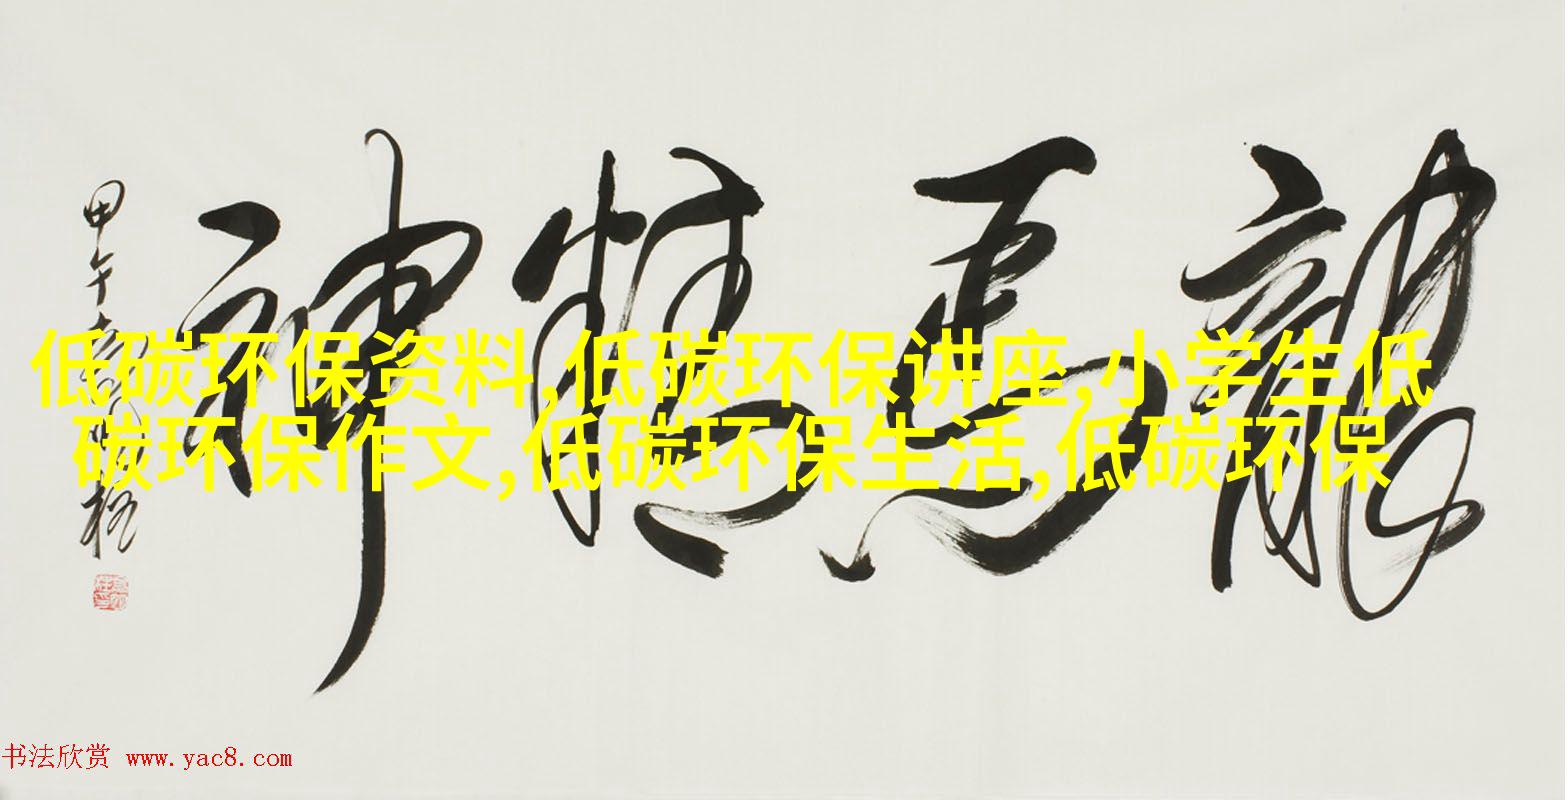 龍馬精神
甲午
低碳环保资料,低碳环保讲座,小学生低
碳环保作文,低碳环保生活,低碳环保
书法欣赏 www.yac8.com